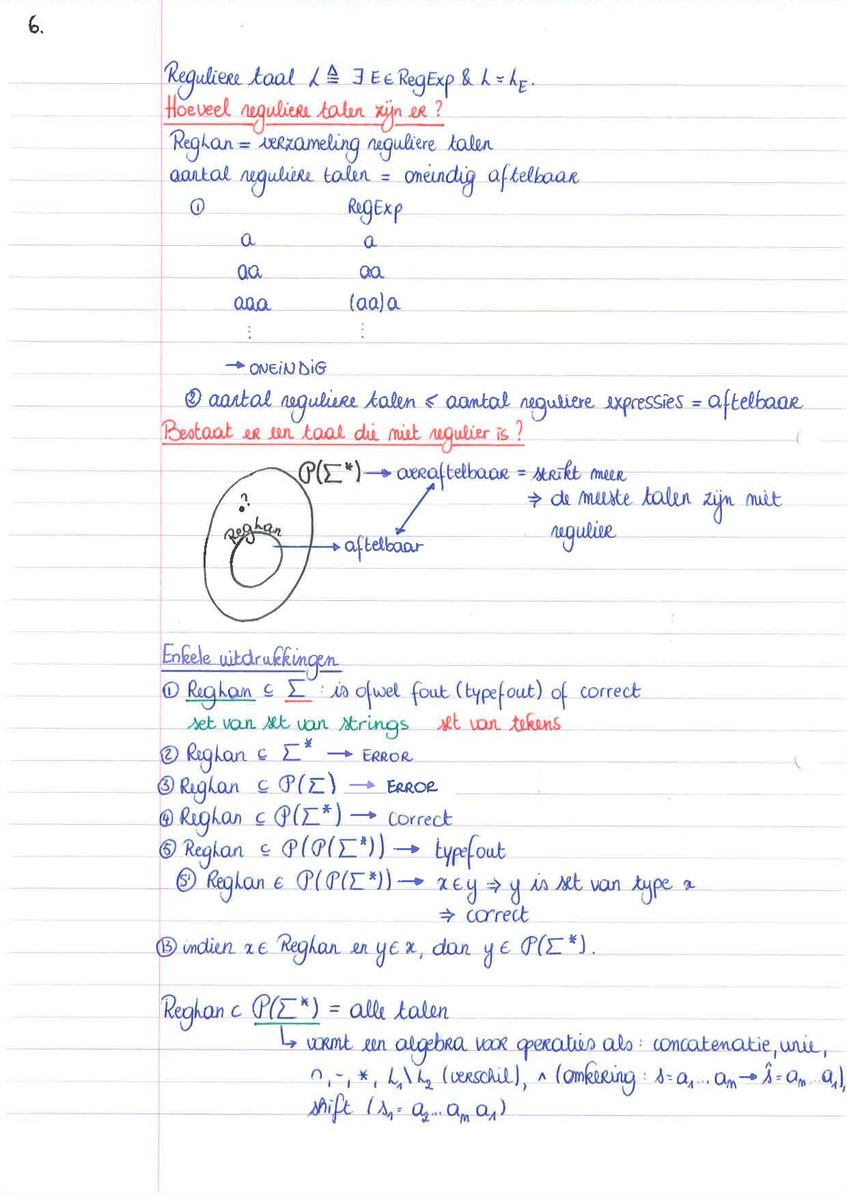 6.
Reguliere taal L ≜ ∃ E ∈ RegExp & L = L_E.
Hoeveel reguliere talen zijn er?
RegLan = verzameling reguliere talen
aantal reguliere talen = oneindig aftelbaar
① RegExp
a a
aa aa
aaa (aa)a
⋮ ⋮
→ ONEINDIG
② aantal reguliere talen ≤ aantal reguliere expressies = aftelbaar
Bestaat er een taal die niet regulier is?
P(Σ*) → overaftelbaar = strikt meer
? ⇒ de meeste talen zijn niet
RegLan regulier
→ aftelbaar
Enkele uitdrukkingen
① RegLan ⊆ Σ : is ofwel fout (typefout) of correct
set van set van strings set van tekens
② RegLan ⊆ Σ* → ERROR
③ RegLan ⊆ P(Σ) → ERROR
④ RegLan ⊂ P(Σ*) → correct
⑤ RegLan ⊆ P(P(Σ*)) → typefout
⑤' RegLan ∈ P(P(Σ*)) → x ∈ y ⇒ y is set van type x
⇒ correct
⑬ indien x ∈ RegLan en y ∈ x, dan y ∈ P(Σ*).
RegLan ⊂ P(Σ*) = alle talen
↳ vormt een algebra voor operaties als: concatenatie, unie,
∩, -, *, L₁\L₂ (verschil), ∧ (omkering: s = a₁...aₘ → ŝ = aₘ...a₁),
shift (s₁ = a₂...aₘ a₁)